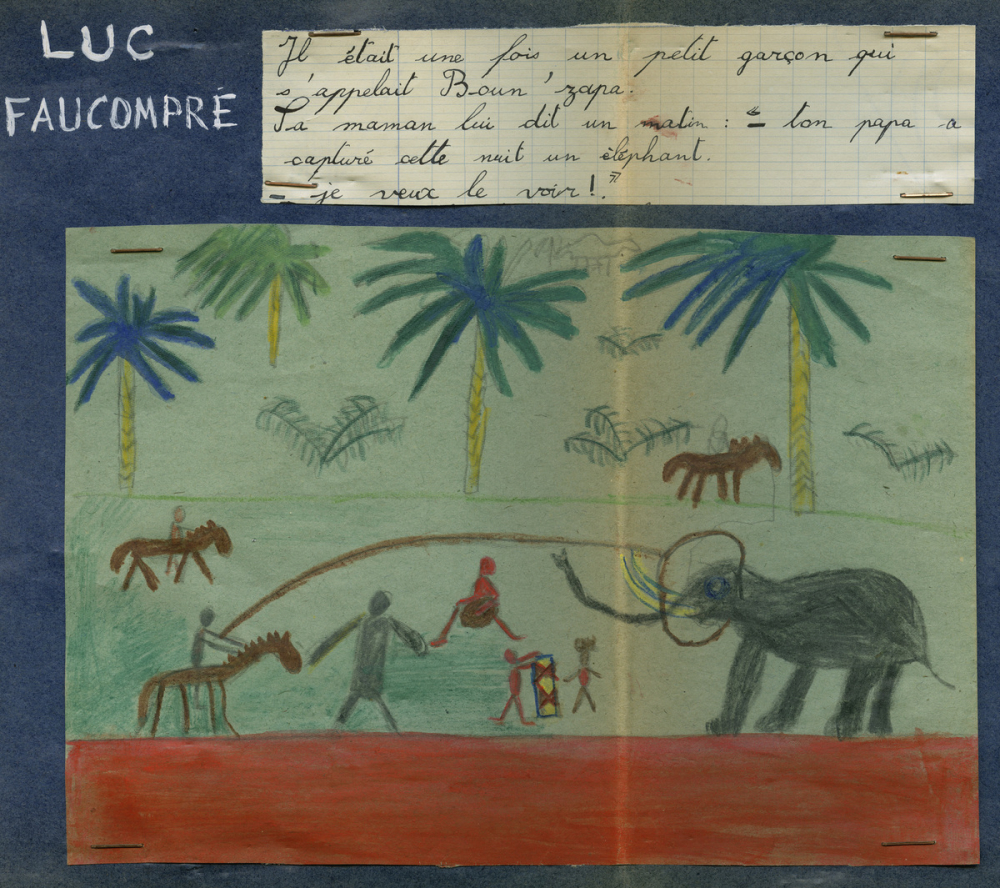 LUC
FAUCOMPRÉ
Il était une fois un petit garçon qui
s'appelait Boun'zapa.
Sa maman lui dit un matin : "– ton papa a
capturé cette nuit un éléphant.
– je veux le voir !."